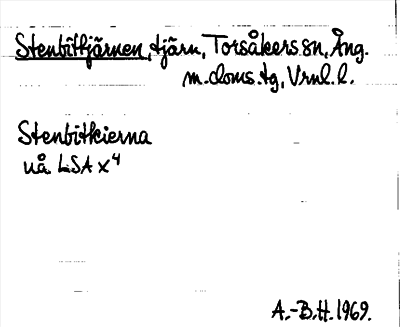 Stenbittjärnen, tjärn, Torsåkers sn, Ång.
m. doms. tg, Vrnl. l.
Stenbitkierna
uå. LSA x⁴
A.-B.H. 1969.